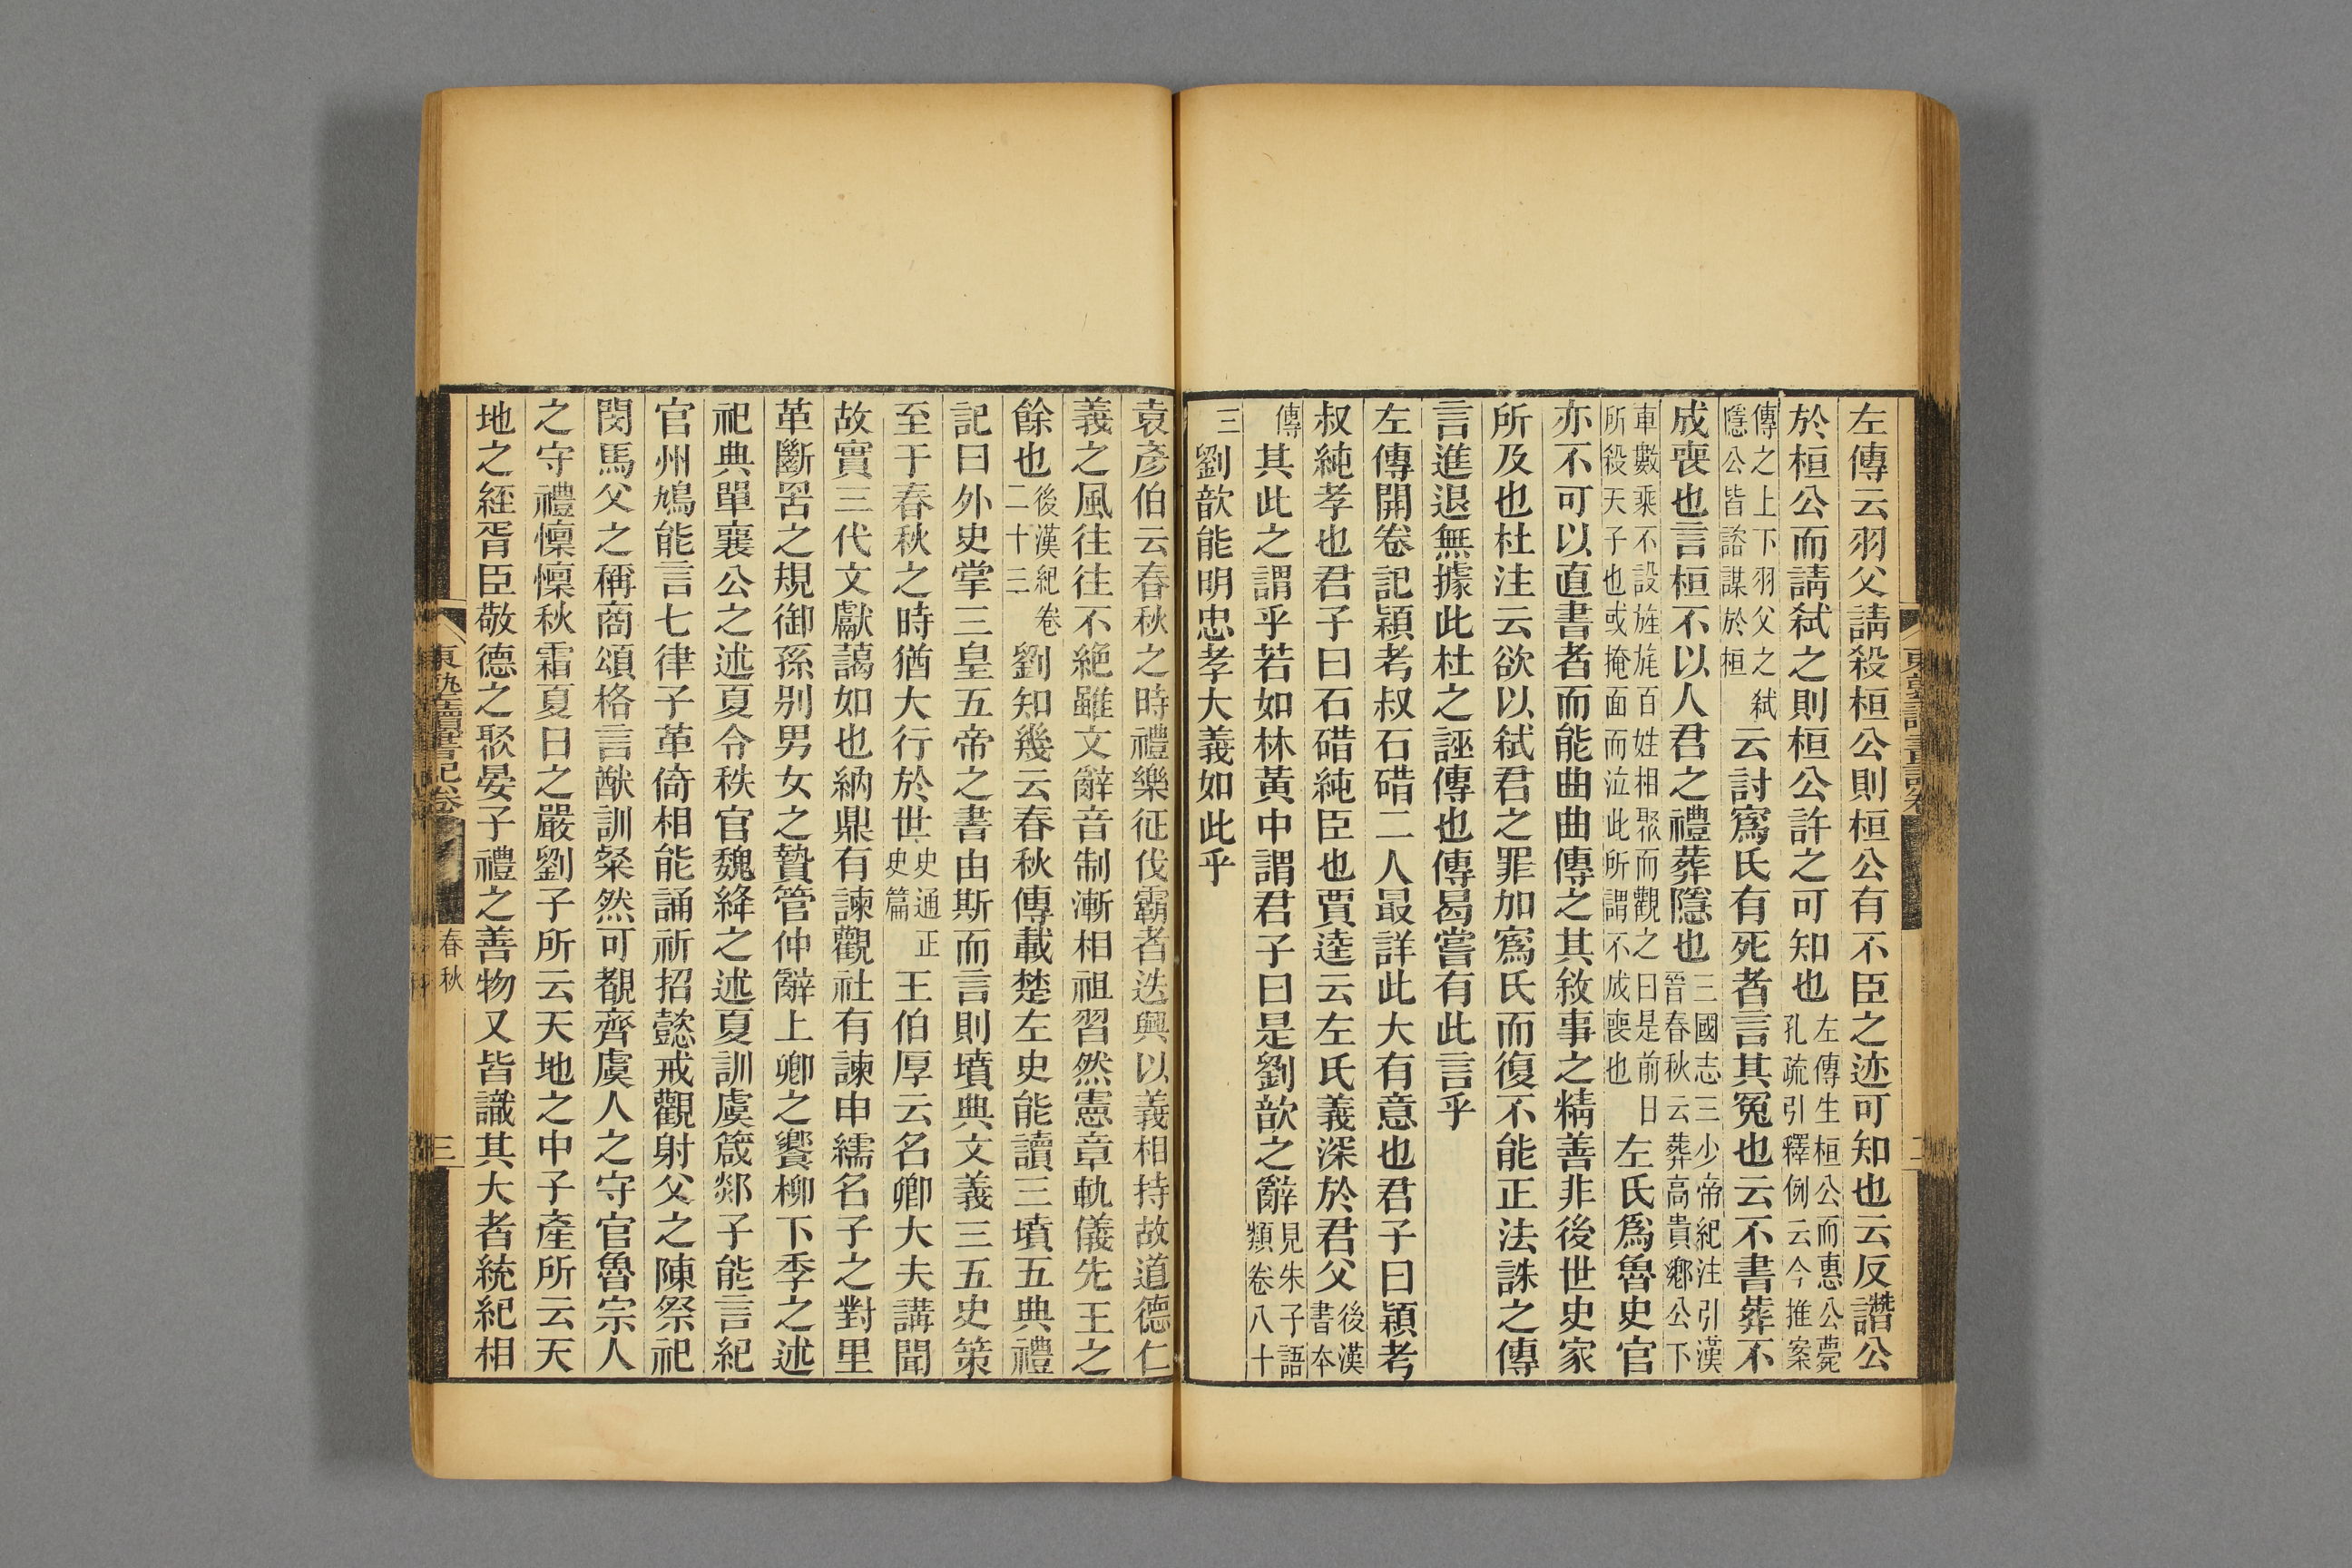 左傳云羽父請殺桓公則桓公有不臣之迹可知也云反譖公
於桓公而請弒之則桓公許之可知也左傳生桓公而惠公薨孔疏引釋例云今推案
傳之上下羽父之弒隱公皆諮謀於桓云討寪氏有死者言其冤也云不書葬不
成喪也言桓不以人君之禮葬隱也三國志三少帝紀注引漢晉春秋云葬高貴鄉公下
車數乘不設旌旄百姓相聚而觀之曰是前日所殺天子也或掩面而泣此所謂不成喪也左氏爲魯史官
亦不可以直書者而能曲曲傳之其敘事之精善非後世史家
所及也杜注云欲以弒君之罪加寪氏而復不能正法誅之傳
言進退無據此杜之誣傳也傳曷嘗有此言乎
左傳開卷記潁考叔石碏二人最詳此大有意也君子曰潁考
叔純孝也君子曰石碏純臣也賈逵云左氏義深於君父後漢書本
傳其此之謂乎若如林黃中謂君子曰是劉歆之辭見朱子語類卷八十
三劉歆能明忠孝大義如此乎
袁彥伯云春秋之時禮樂征伐霸者迭興以義相持故道德仁
義之風往往不絕雖文辭音制漸相祖習然憲章軌儀先王之
餘也後漢紀卷二十三劉知幾云春秋傳載楚左史能讀三墳五典禮
記曰外史掌三皇五帝之書由斯而言則墳典文義三五史策
至于春秋之時猶大行於世史通正史篇王伯厚云名卿大夫講聞
故實三代文獻藹如也納鼎有諫觀社有諫申繻名子之對里
革斷罟之規御孫別男女之贄管仲辭上卿之饗柳下季之述
祀典單襄公之述夏令秩官魏絳之述夏訓虞箴郯子能言紀
官州鳩能言七律子革倚相能誦祈招懿戒觀射父之陳祭祀
閔馬父之稱商頌格言猷訓粲然可覩齊虞人之守官魯宗人
之守禮懍懍秋霜夏日之嚴劉子所云天地之中子產所云天
地之經胥臣敬德之聚晏子禮之善物又皆識其大者統紀相
東塾讀書記卷
春秋
三